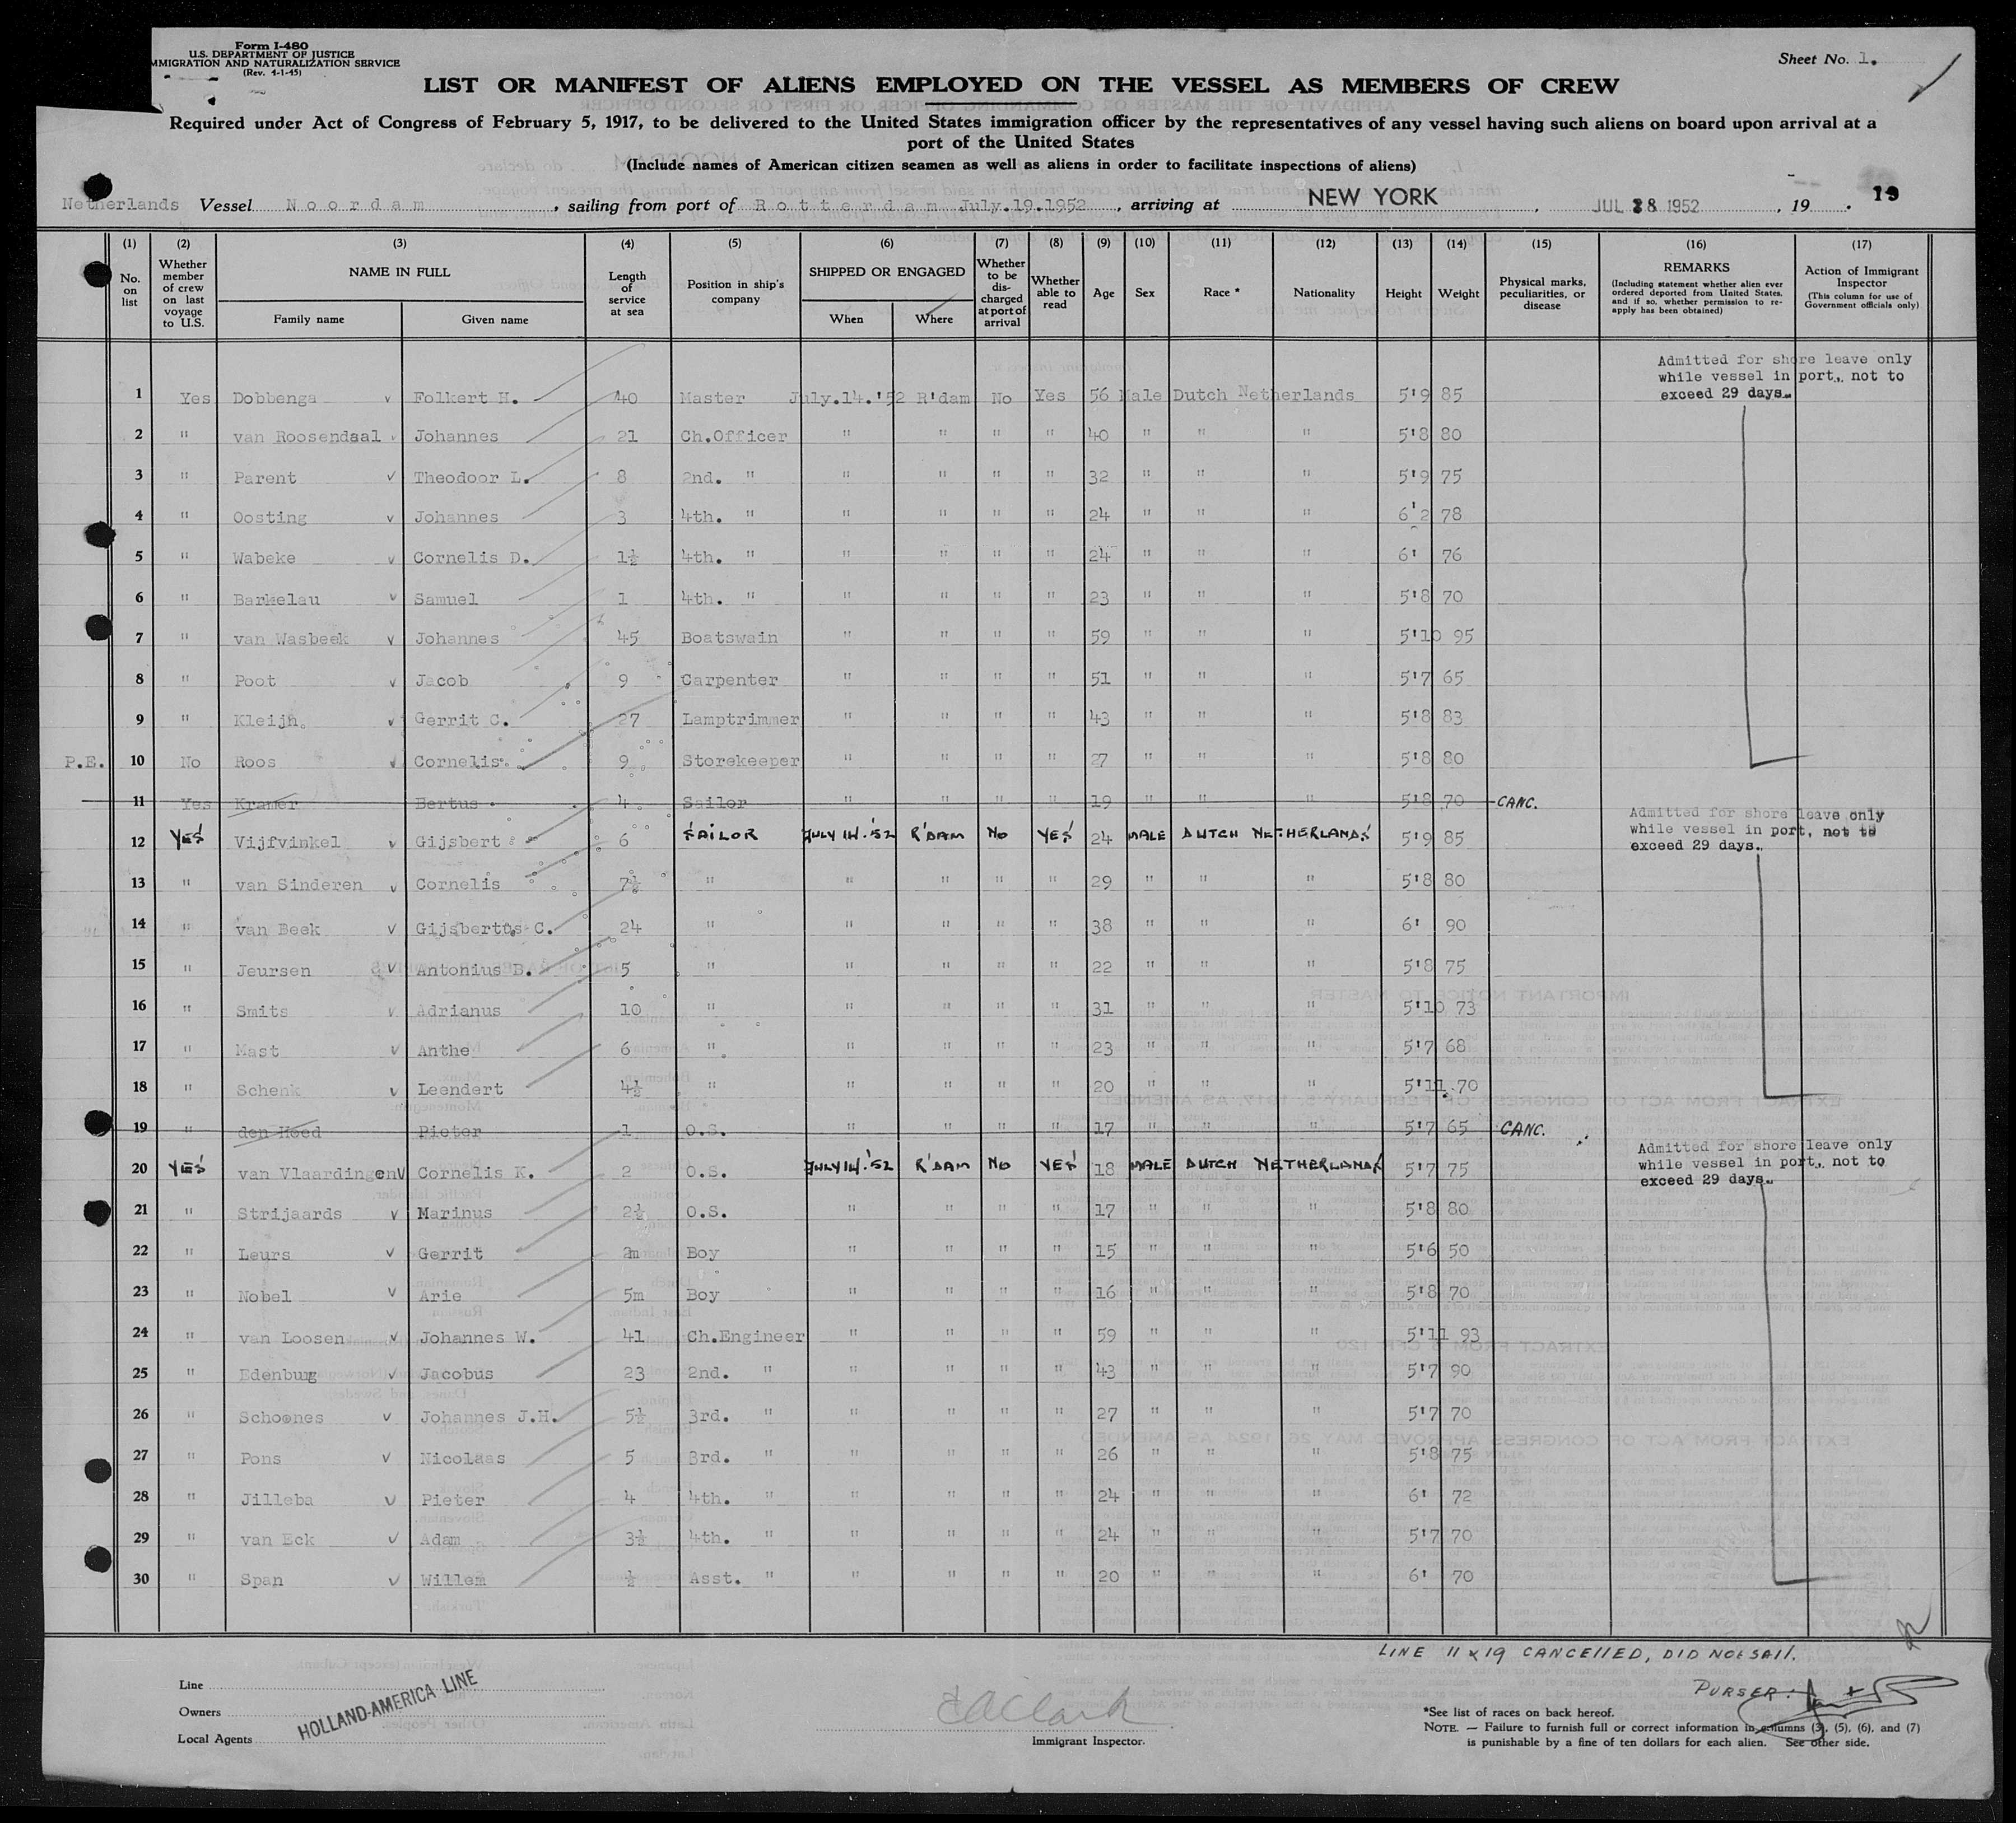 Form I-480
U.S. DEPARTMENT OF JUSTICE
IMMIGRATION AND NATURALIZATION SERVICE
(Rev. 4-1-45)
Sheet No. 1.
LIST OR MANIFEST OF ALIENS EMPLOYED ON THE VESSEL AS MEMBERS OF CREW
Required under Act of Congress of February 5, 1917, to be delivered to the United States immigration officer by the representatives of any vessel having such aliens on board upon arrival at a
port of the United States
(Include names of American citizen seamen as well as aliens in order to facilitate inspections of aliens)
19
Netherlands Vessel Noordam, sailing from port of Rotterdam July.19.1952, arriving at NEW YORK, JUL 28 1952, 19 .
(1) No. on list (2) Whether member of crew on last voyage to U.S. (3) NAME IN FULL Family name Given name (4) Length of service at sea (5) Position in ship's company (6) SHIPPED OR ENGAGED When Where (7) Whether to be discharged at port of arrival (8) Whether able to read (9) Age (10) Sex (11) Race * (12) Nationality (13) Height (14) Weight (15) Physical marks, peculiarities, or disease (16) REMARKS (Including statement whether alien ever ordered deported from United States, and if so, whether permission to re-apply has been obtained) (17) Action of Immigrant Inspector (This column for use of Government officials only)
Admitted for shore leave only
while vessel in port, not to
exceed 29 days.
1 Yes Dobbenga v Folkert H. 40 Master July.14.'52 R'dam No Yes 56 Male Dutch Netherlands 5'9 85
2 " van Roosendaal v Johannes 21 Ch.Officer " " " " 40 " " " 5'8 80
3 " Parent v Theodoor L. 8 2nd. " " " " " 32 " " " 5'9 75
4 " Oosting v Johannes 3 4th. " " " " " 24 " " " 6'2 78
5 " Wabeke v Cornelis D. 1½ 4th. " " " " " 24 " " " 6' 76
6 " Barkelau v Samuel 1 4th. " " " " " 23 " " " 5'8 70
7 " van Wasbeek v Johannes 45 Boatswain " " " " 59 " " " 5'10 95
8 " Poot v Jacob 9 Carpenter " " " " 51 " " " 5'7 65
9 " Kleijn. v Gerrit C. 27 Lamptrimmer " " " " 43 " " " 5'8 83
P.E. 10 No Roos v Cornelis 9 Storekeeper " " " " 27 " " " 5'8 80
11 Yes Kramer Bertus 4 Sailor " " " " 19 " " " 5'8 70 CANC.
Admitted for shore leave only
while vessel in port, not to
exceed 29 days.
12 YES Vijfvinkel v Gijsbert 6 SAILOR JULY 14.'52 R'DAM NO YES 24 MALE DUTCH NETHERLANDS 5'9 85
13 " van Sinderen v Cornelis 7½ " " " " " 29 " " " 5'8 80
14 " van Beek v Gijsbertus C. 24 " " " " " 38 " " " 6' 90
15 " Jeursen v Antonius B. 5 " " " " " 22 " " " 5'8 75
16 " Smits v Adrianus 10 " " " " " 31 " " " 5'10 73
17 " Mast v Anthe 6 " " " " " 23 " " " 5'7 68
18 " Schenk v Leendert 4½ " " " " " 20 " " " 5'11 70
19 " den Hoed Pieter 1 O.S. " " " " 17 " " " 5'7 65 CANC.
Admitted for shore leave only
while vessel in port, not to
exceed 29 days.
20 YES van Vlaardingen v Cornelis K. 2 O.S. JULY 14.'52 R'DAM NO YES 18 MALE DUTCH NETHERLANDS 5'7 75
21 " Strijaards v Marinus 2½ O.S. " " " " 17 " " " 5'8 80
22 " Leurs v Gerrit 2m Boy " " " " 15 " " " 5'6 50
23 " Nobel v Arie 5m Boy " " " " 16 " " " 5'8 70
24 " van Loosen v Johannes W. 41 Ch.Engineer " " " " 59 " " " 5'11 93
25 " Edenburg v Jacobus 23 2nd. " " " " " 43 " " " 5'7 90
26 " Schoones v Johannes J.H. 5½ 3rd. " " " " " 27 " " " 5'7 70
27 " Pons v Nicolaas 5 3rd. " " " " " 26 " " " 5'8 75
28 " Jilleba v Pieter 4 4th. " " " " " 24 " " " 6' 72
29 " van Eck v Adam 3½ 4th. " " " " " 24 " " " 5'7 70
30 " Span v Willem ½ Asst. " " " " " 20 " " " 6' 70
LINE 11 & 19 CANCELLED, DID NOt SAIL.
PURSER:
Line
Owners
Local Agents
HOLLAND-AMERICA LINE
E A Clark
Immigrant Inspector.
*See list of races on back hereof.
NOTE. — Failure to furnish full or correct information in columns (3), (5), (6), and (7)
is punishable by a fine of ten dollars for each alien. See other side.